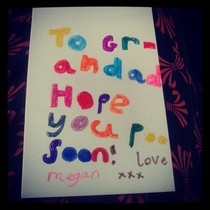 To Gr-
andad
Hope
you p..
Soon! Love
megan xxx